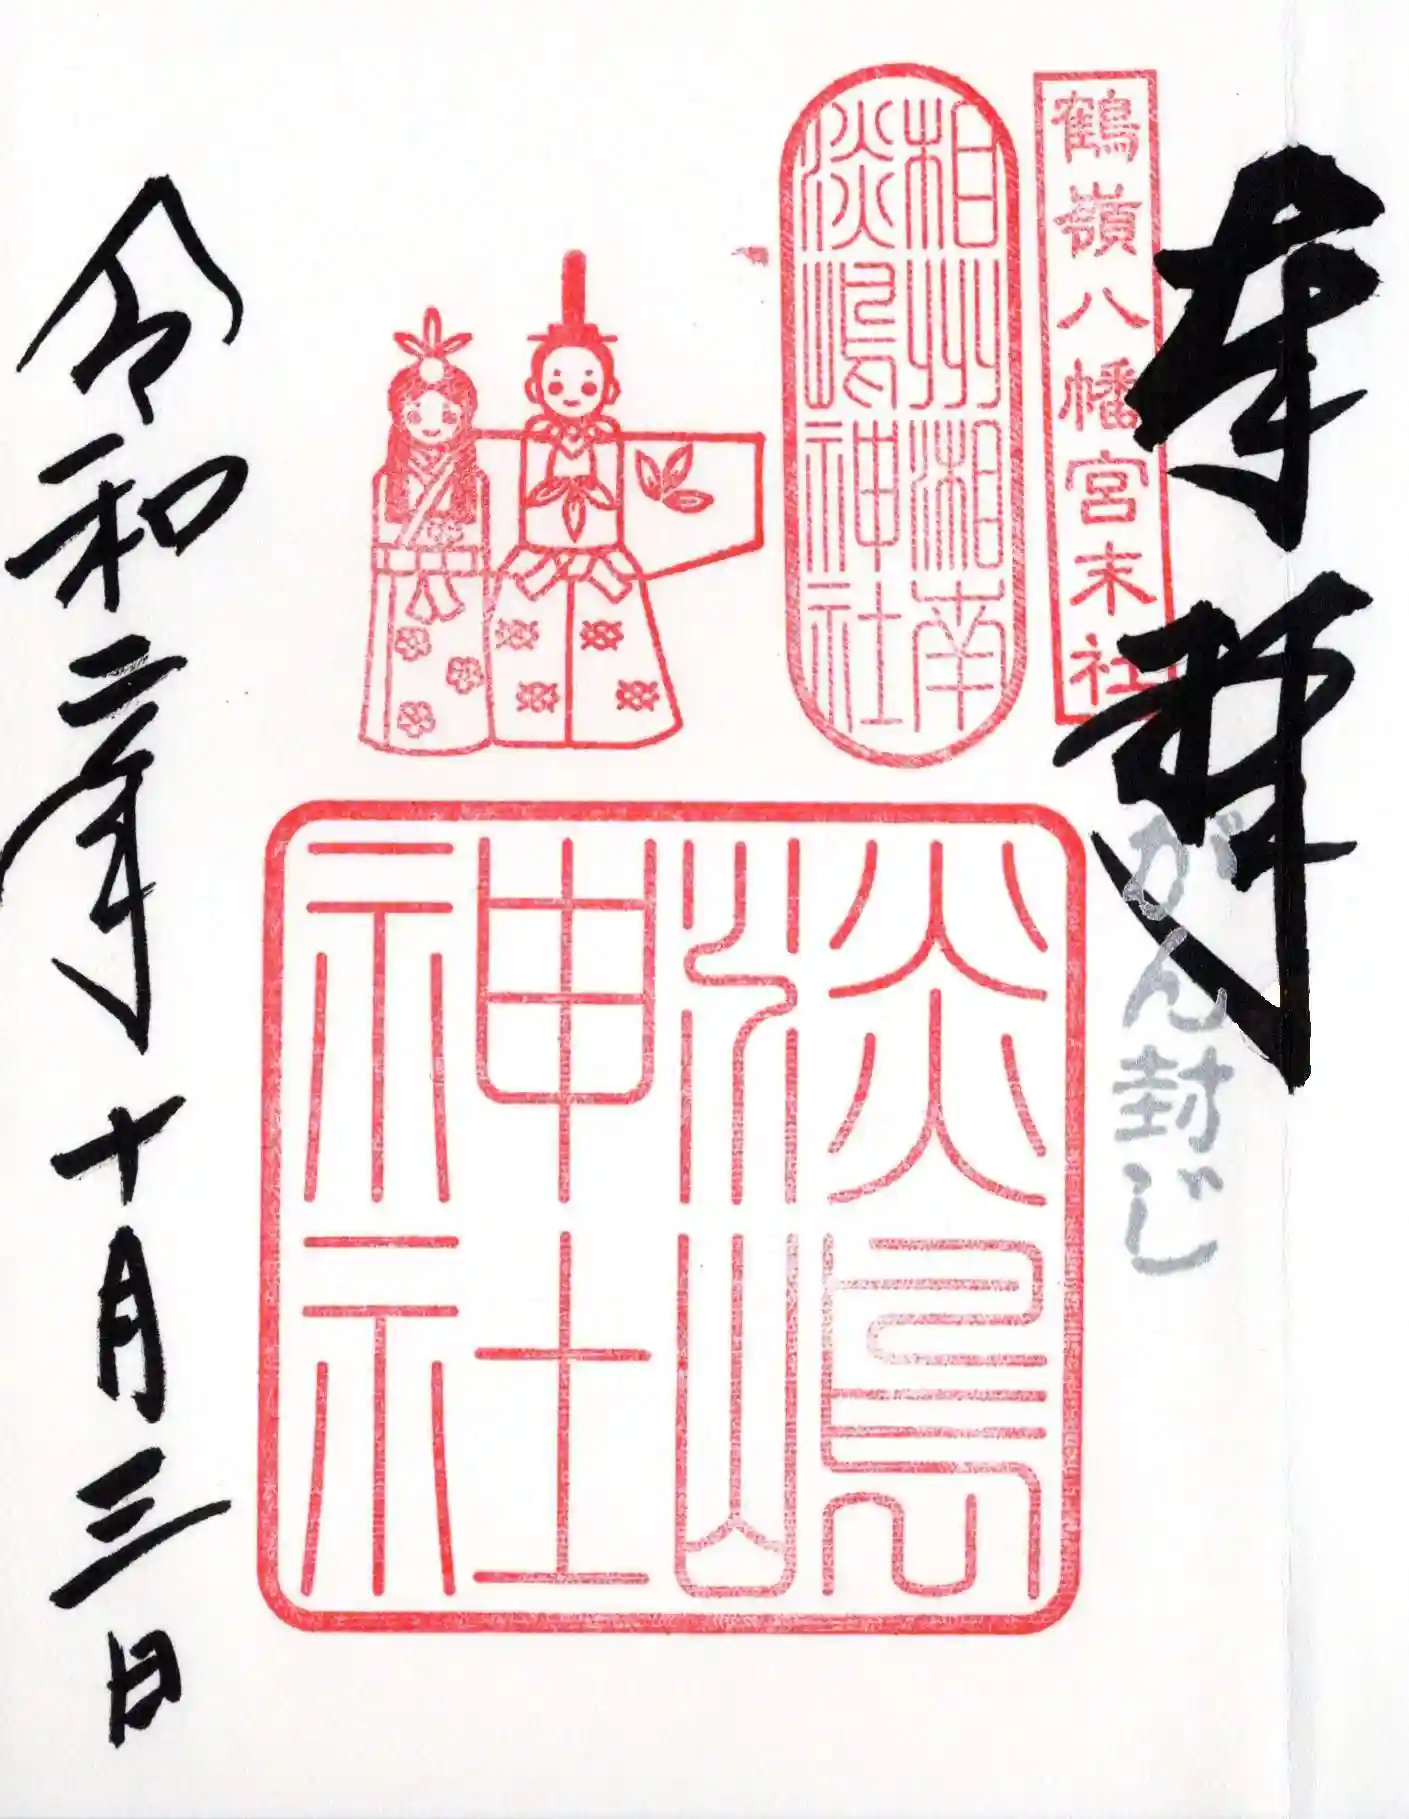 奉拝
がん封じ
鶴嶺八幡宮末社
相州湘南
淡嶋神社
淡嶋
神社
令和二年十月三日